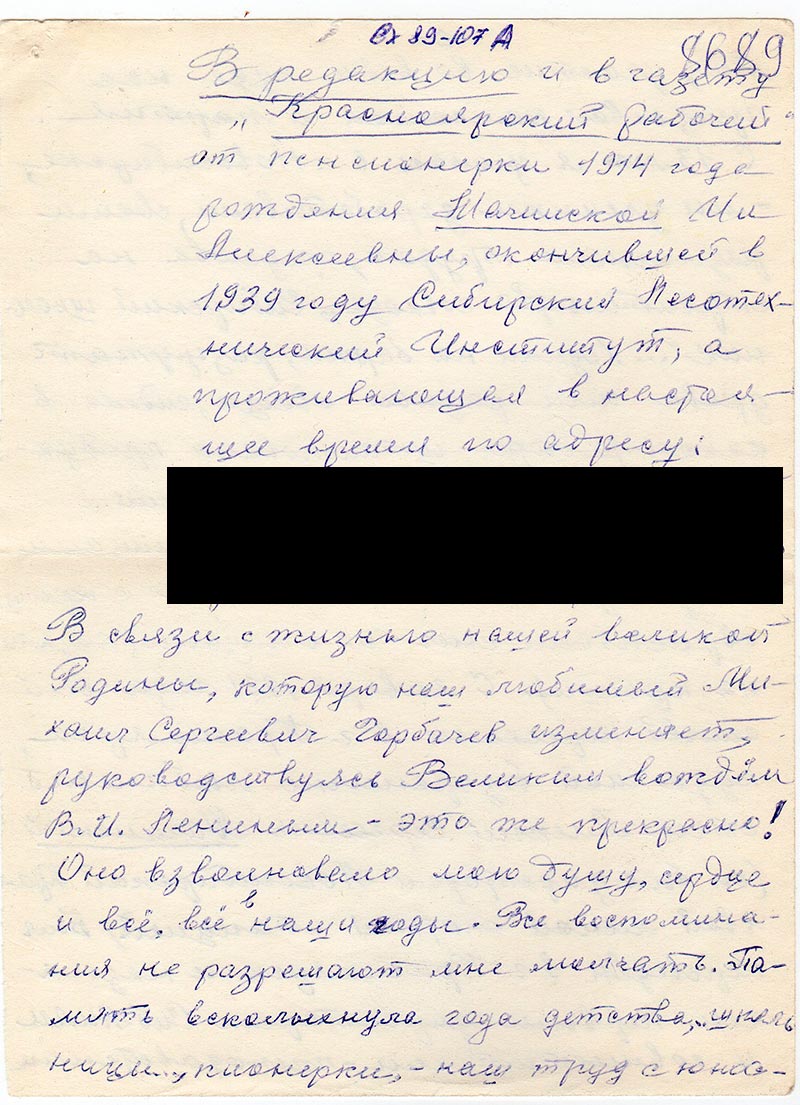 Вх 89-107 А
8689
В редакцию и в газету
„Красноярский рабочий"
от пенсионерки 1914 года
рождения Тачинской Ии
Алексеевны, окончившей в
1939 году Сибирский Лесотех-
нический Институт, а
проживающая в настоя-
щее время по адресу:
В связи с жизнью нашей великой
Родины, которую наш любимый Ми-
хаил Сергеевич Горбачев изменяет,
руководствуясь Великим вождём
В.И. Лениным - это же прекрасно!
Оно взволновало мою душу, сердце
и всё, всё в наши годы. Все воспомина-
ния не разрешают мне молчать. Па-
мять всколыхнула года детства, школь
ницы, пионерки, - наш труд с юно-